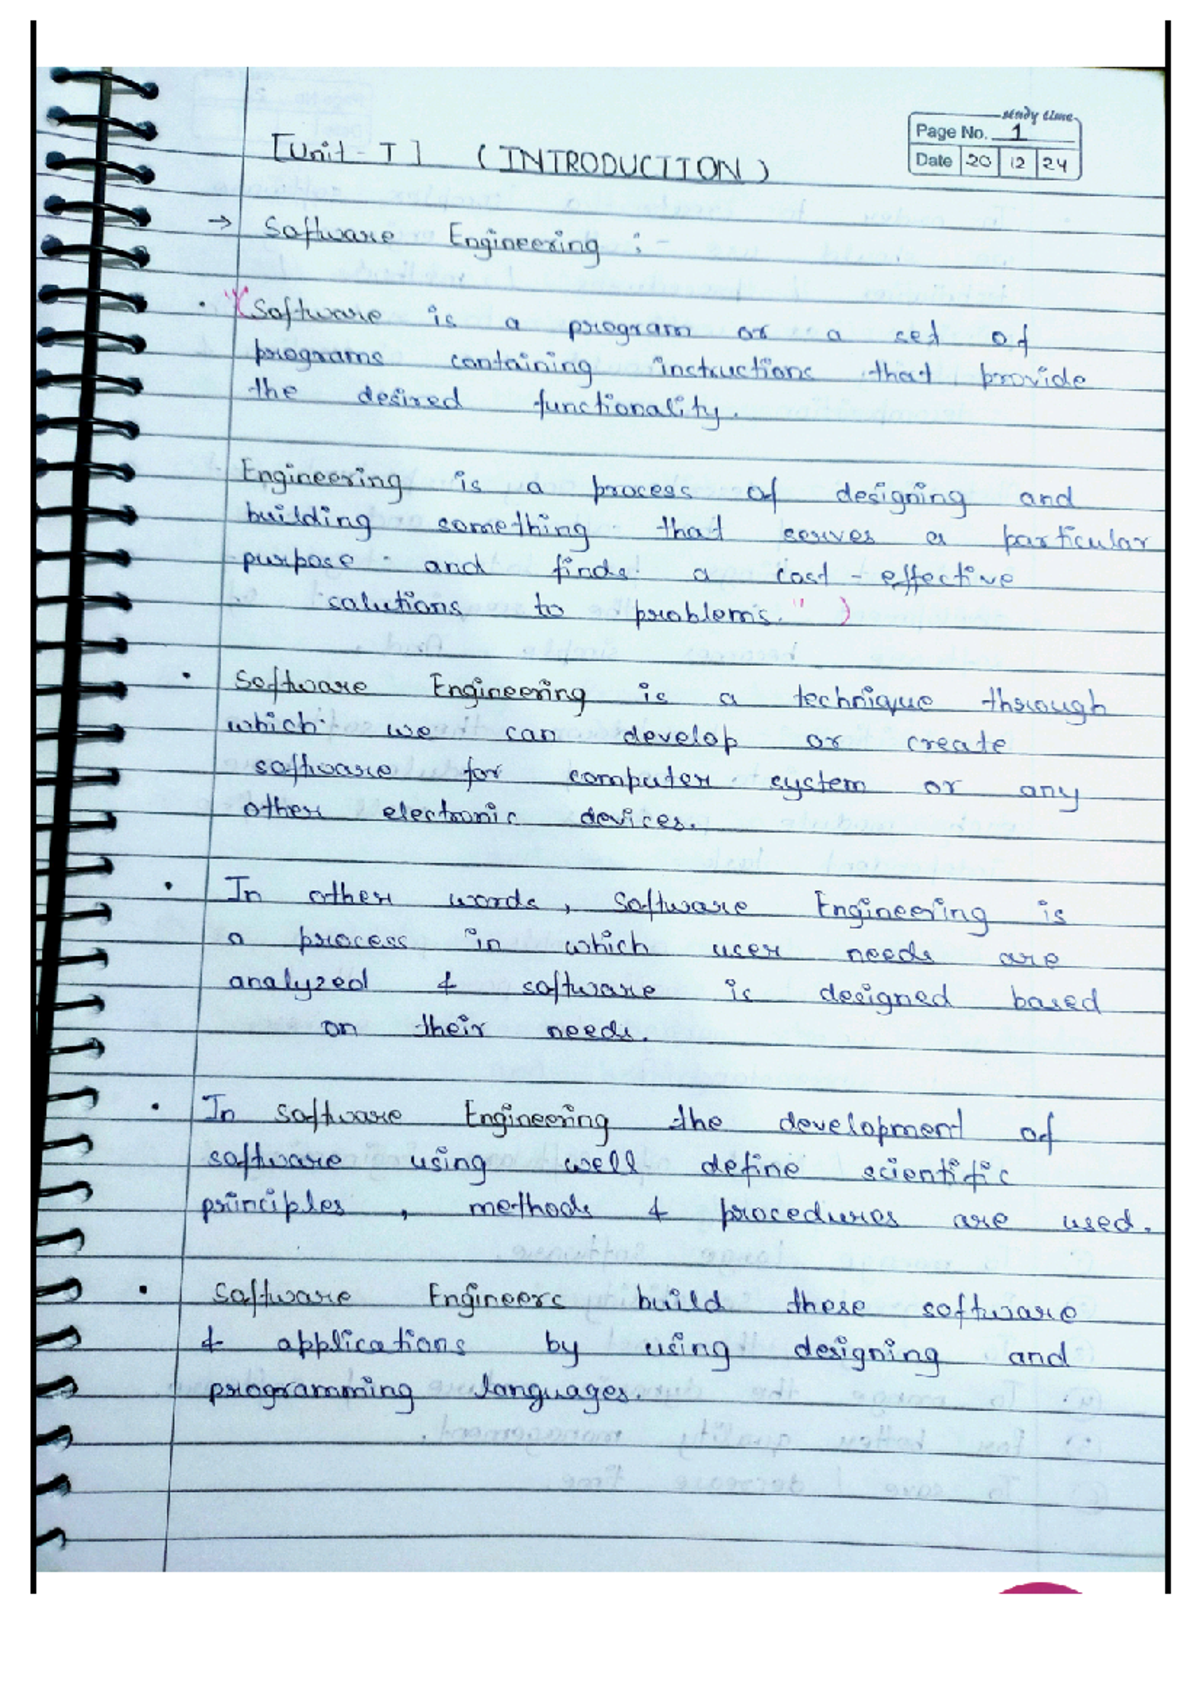 study time
Page No. 1
Date 20 12 24
[Unit - I] (INTRODUCTION)
→ Software Engineering :
• "(Software is a program or a set of
programs containing instructions that provide
the desired functionality.
Engineering is a process of designing and
building something that serves a particular
purpose and finds a cost-effective
solutions to problems.")
• Software Engineering is a technique through
which we can develop or create
software for computer system or any
other electronic devices.
• In other words, Software Engineering is
a process in which user needs are
analyzed & software is designed based
on their needs.
• In Software Engineering the development of
software using well define scientific
principles, methods & procedures are used.
• Software Engineers build these software
& applications by using designing and
programming languages.